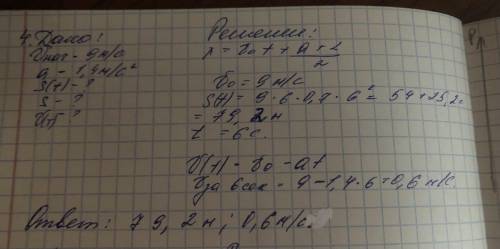 4. Дано:
Vнач – 9 м/с
a – 1,4 м/с²
S(t) – ?
S – ?
V(t) ?
Решение:
s = v₀ t + a t 2 / 2
v₀ = 9 м/с
S(t) = 9 · 6 · 0,7 · 6² = 54 + 25,2
= 79,2 м
t = 6 с.
V(t) = v₀ – at
Vза 6 сек = 9 – 1,4 · 6 = 0,6 м/с
Ответ: 79,2 м; 0,6 м/с.